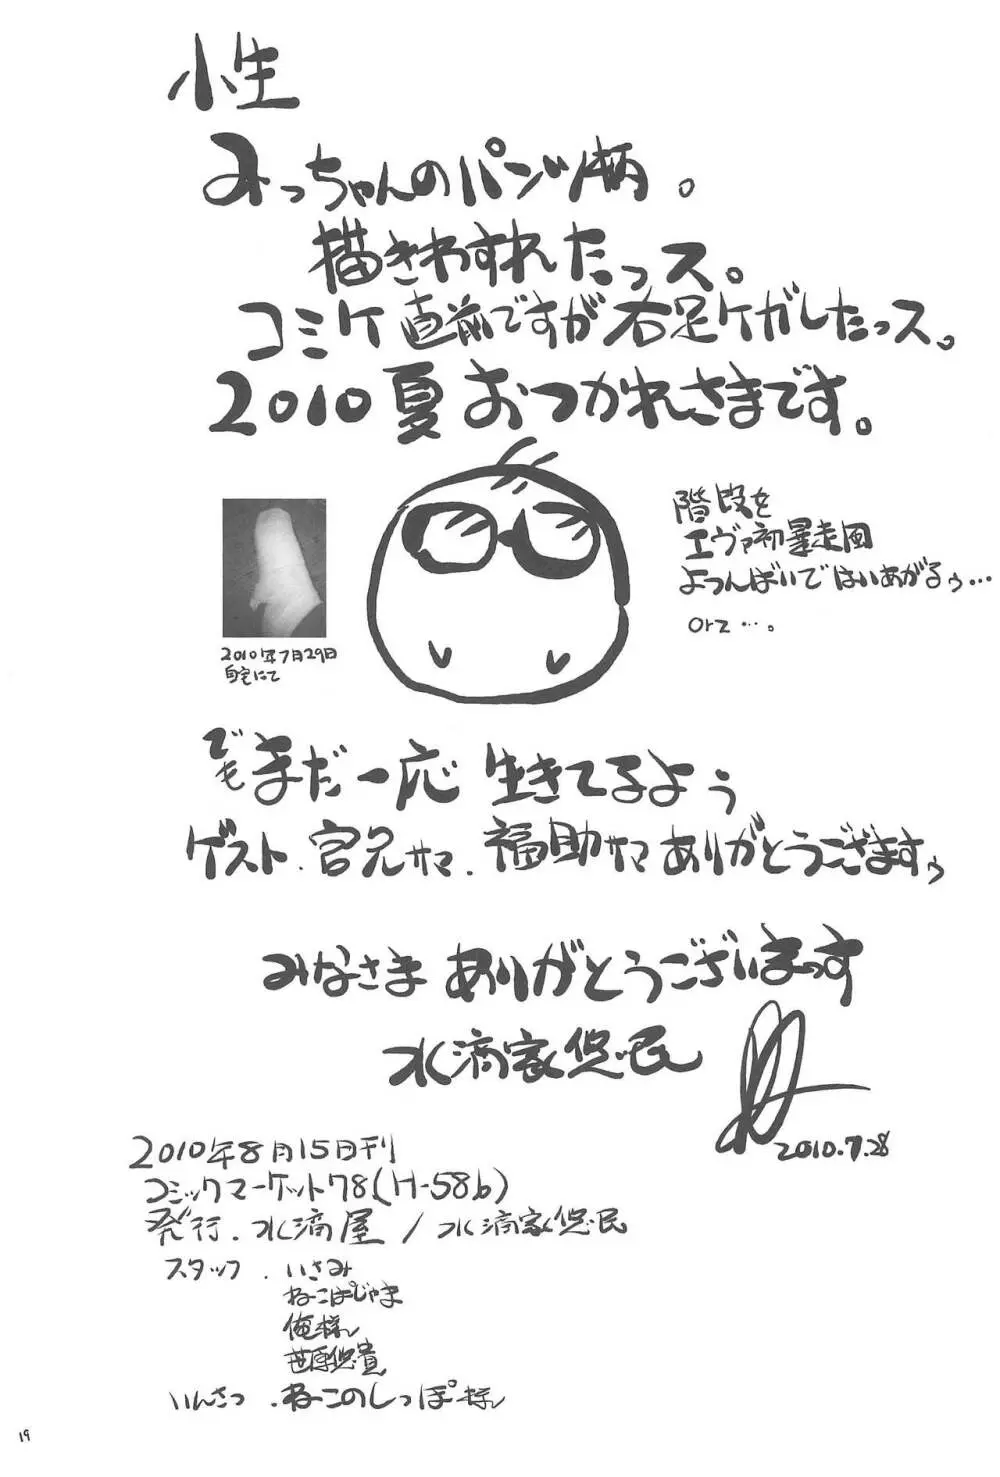 小生
みっちゃんのパンツ柄。
描きわすれたっス。
コミケ直前ですが右足ケガしたっス。
2010夏おつかれさまです。
階段を
エヴァ初暴走風
よつんばいではいあがるぅ…
orz…。
2010年7月29日
自宅にて
でもまだ一応 生きてるよぅ
ゲスト.宮兄サマ.福助サマありがとうござますぅ
みなさまありがとうございまっす
水滴家悠民
2010.7.28
2010年8月15日刊
コミックマーケット78(H-58b)
発行.水滴屋/水滴家悠民
スタッフ.いさみ
ねこぱじゃま
俺様
笹原悠貴
いんさつ.ねこのしっぽ様
19